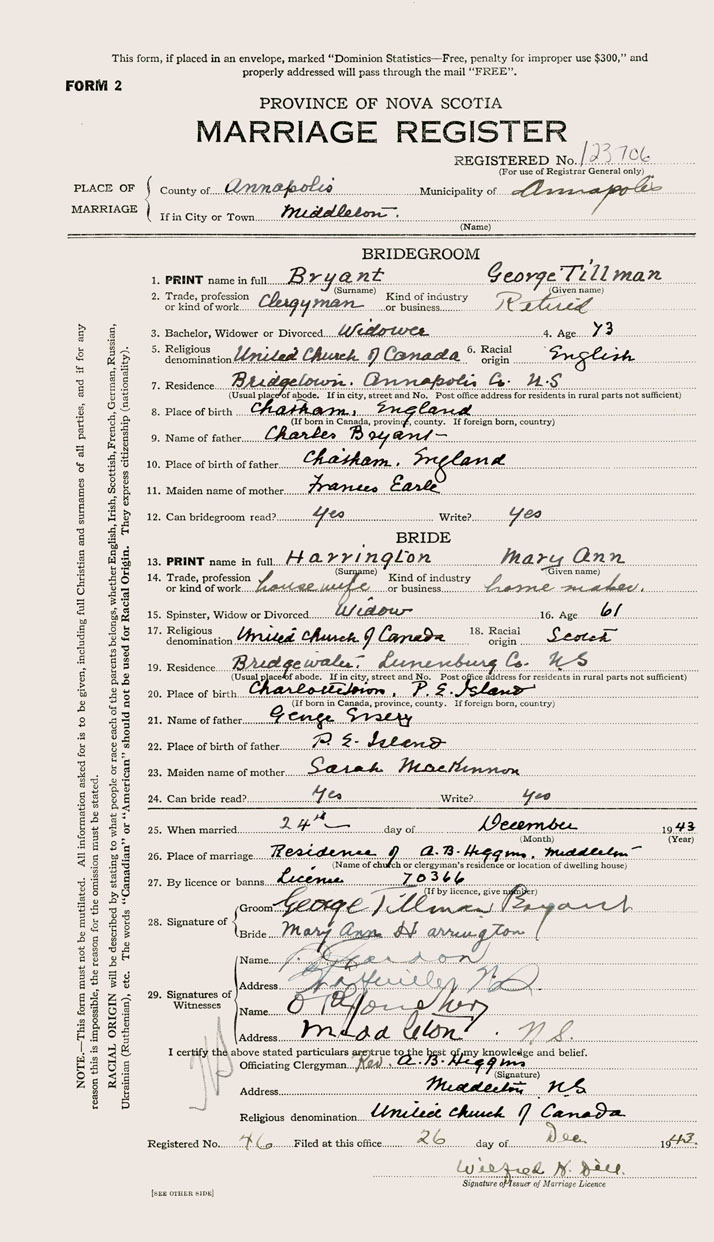 This form, if placed in an envelope, marked "Dominion Statistics—Free, penalty for improper use $300," and
properly addressed will pass through the mail "FREE".
FORM 2
PROVINCE OF NOVA SCOTIA
MARRIAGE REGISTER
REGISTERED No. 123706
(For use of Registrar General only)
PLACE OF MARRIAGE
County of Annapolis Municipality of Annapolis
If in City or Town Middleton.
(Name)
BRIDEGROOM
1. PRINT name in full Bryant George Tillman
(Surname) (Given name)
2. Trade, profession or kind of work Clergyman Kind of industry or business Retired
3. Bachelor, Widower or Divorced Widower 4. Age 73
5. Religious denomination United Church of Canada 6. Racial origin English
7. Residence Bridgetown. Annapolis Co. N.S
(Usual place of abode. If in city, street and No. Post office address for residents in rural parts not sufficient)
8. Place of birth Chatham, England
(If born in Canada, province, county. If foreign born, country)
9. Name of father Charles Bryant
10. Place of birth of father Chatham, England
11. Maiden name of mother Frances Earle
12. Can bridegroom read? Yes Write? Yes
BRIDE
13. PRINT name in full Harrington Mary Ann
(Surname) (Given name)
14. Trade, profession or kind of work housewife Kind of industry or business home maker.
15. Spinster, Widow or Divorced Widow 16. Age 61
17. Religious denomination United Church of Canada 18. Racial origin Scotch
19. Residence Bridgewater. Lunenburg Co. NS
(Usual place of abode. If in city, street and No. Post office address for residents in rural parts not sufficient)
20. Place of birth Charlottetown, P.E. Island
(If born in Canada, province, county. If foreign born, country)
21. Name of father George
22. Place of birth of father P.E. Island
23. Maiden name of mother Sarah MacKinnon
24. Can bride read? Yes Write? Yes
25. When married 24th day of December 1943
(Month) (Year)
26. Place of marriage Residence of A.B. Higgins, Middleton
(Name of church or clergyman's residence or location of dwelling house)
27. By licence or banns License 70366
(If by licence, give number)
28. Signature of
Groom George Tillman Bryant
Bride Mary Ann Harrington
29. Signatures of Witnesses
Name
Address
Name
Address Middleton. N.S.
I certify the above stated particulars are true to the best of my knowledge and belief.
Officiating Clergyman Rev. A.B. Higgins
(Signature)
Address Middleton NS
Religious denomination United Church of Canada
Registered No. 46 Filed at this office 26 day of Dec 1943.
Wilfred
Signature of Issuer of Marriage Licence
[SEE OTHER SIDE]
NOTE.—This form must not be mutilated. All information asked for is to be given, including full Christian and surnames of all parties, and if for any
reason this is impossible, the reason for the omission must be stated.
RACIAL ORIGIN will be described by stating to what people or race each of the parents belongs, whether English, Irish, Scottish, French, German, Russian,
Ukrainian (Ruthenian), etc. The words "Canadian" or "American" should not be used for Racial Origin. They express citizenship (nationality).